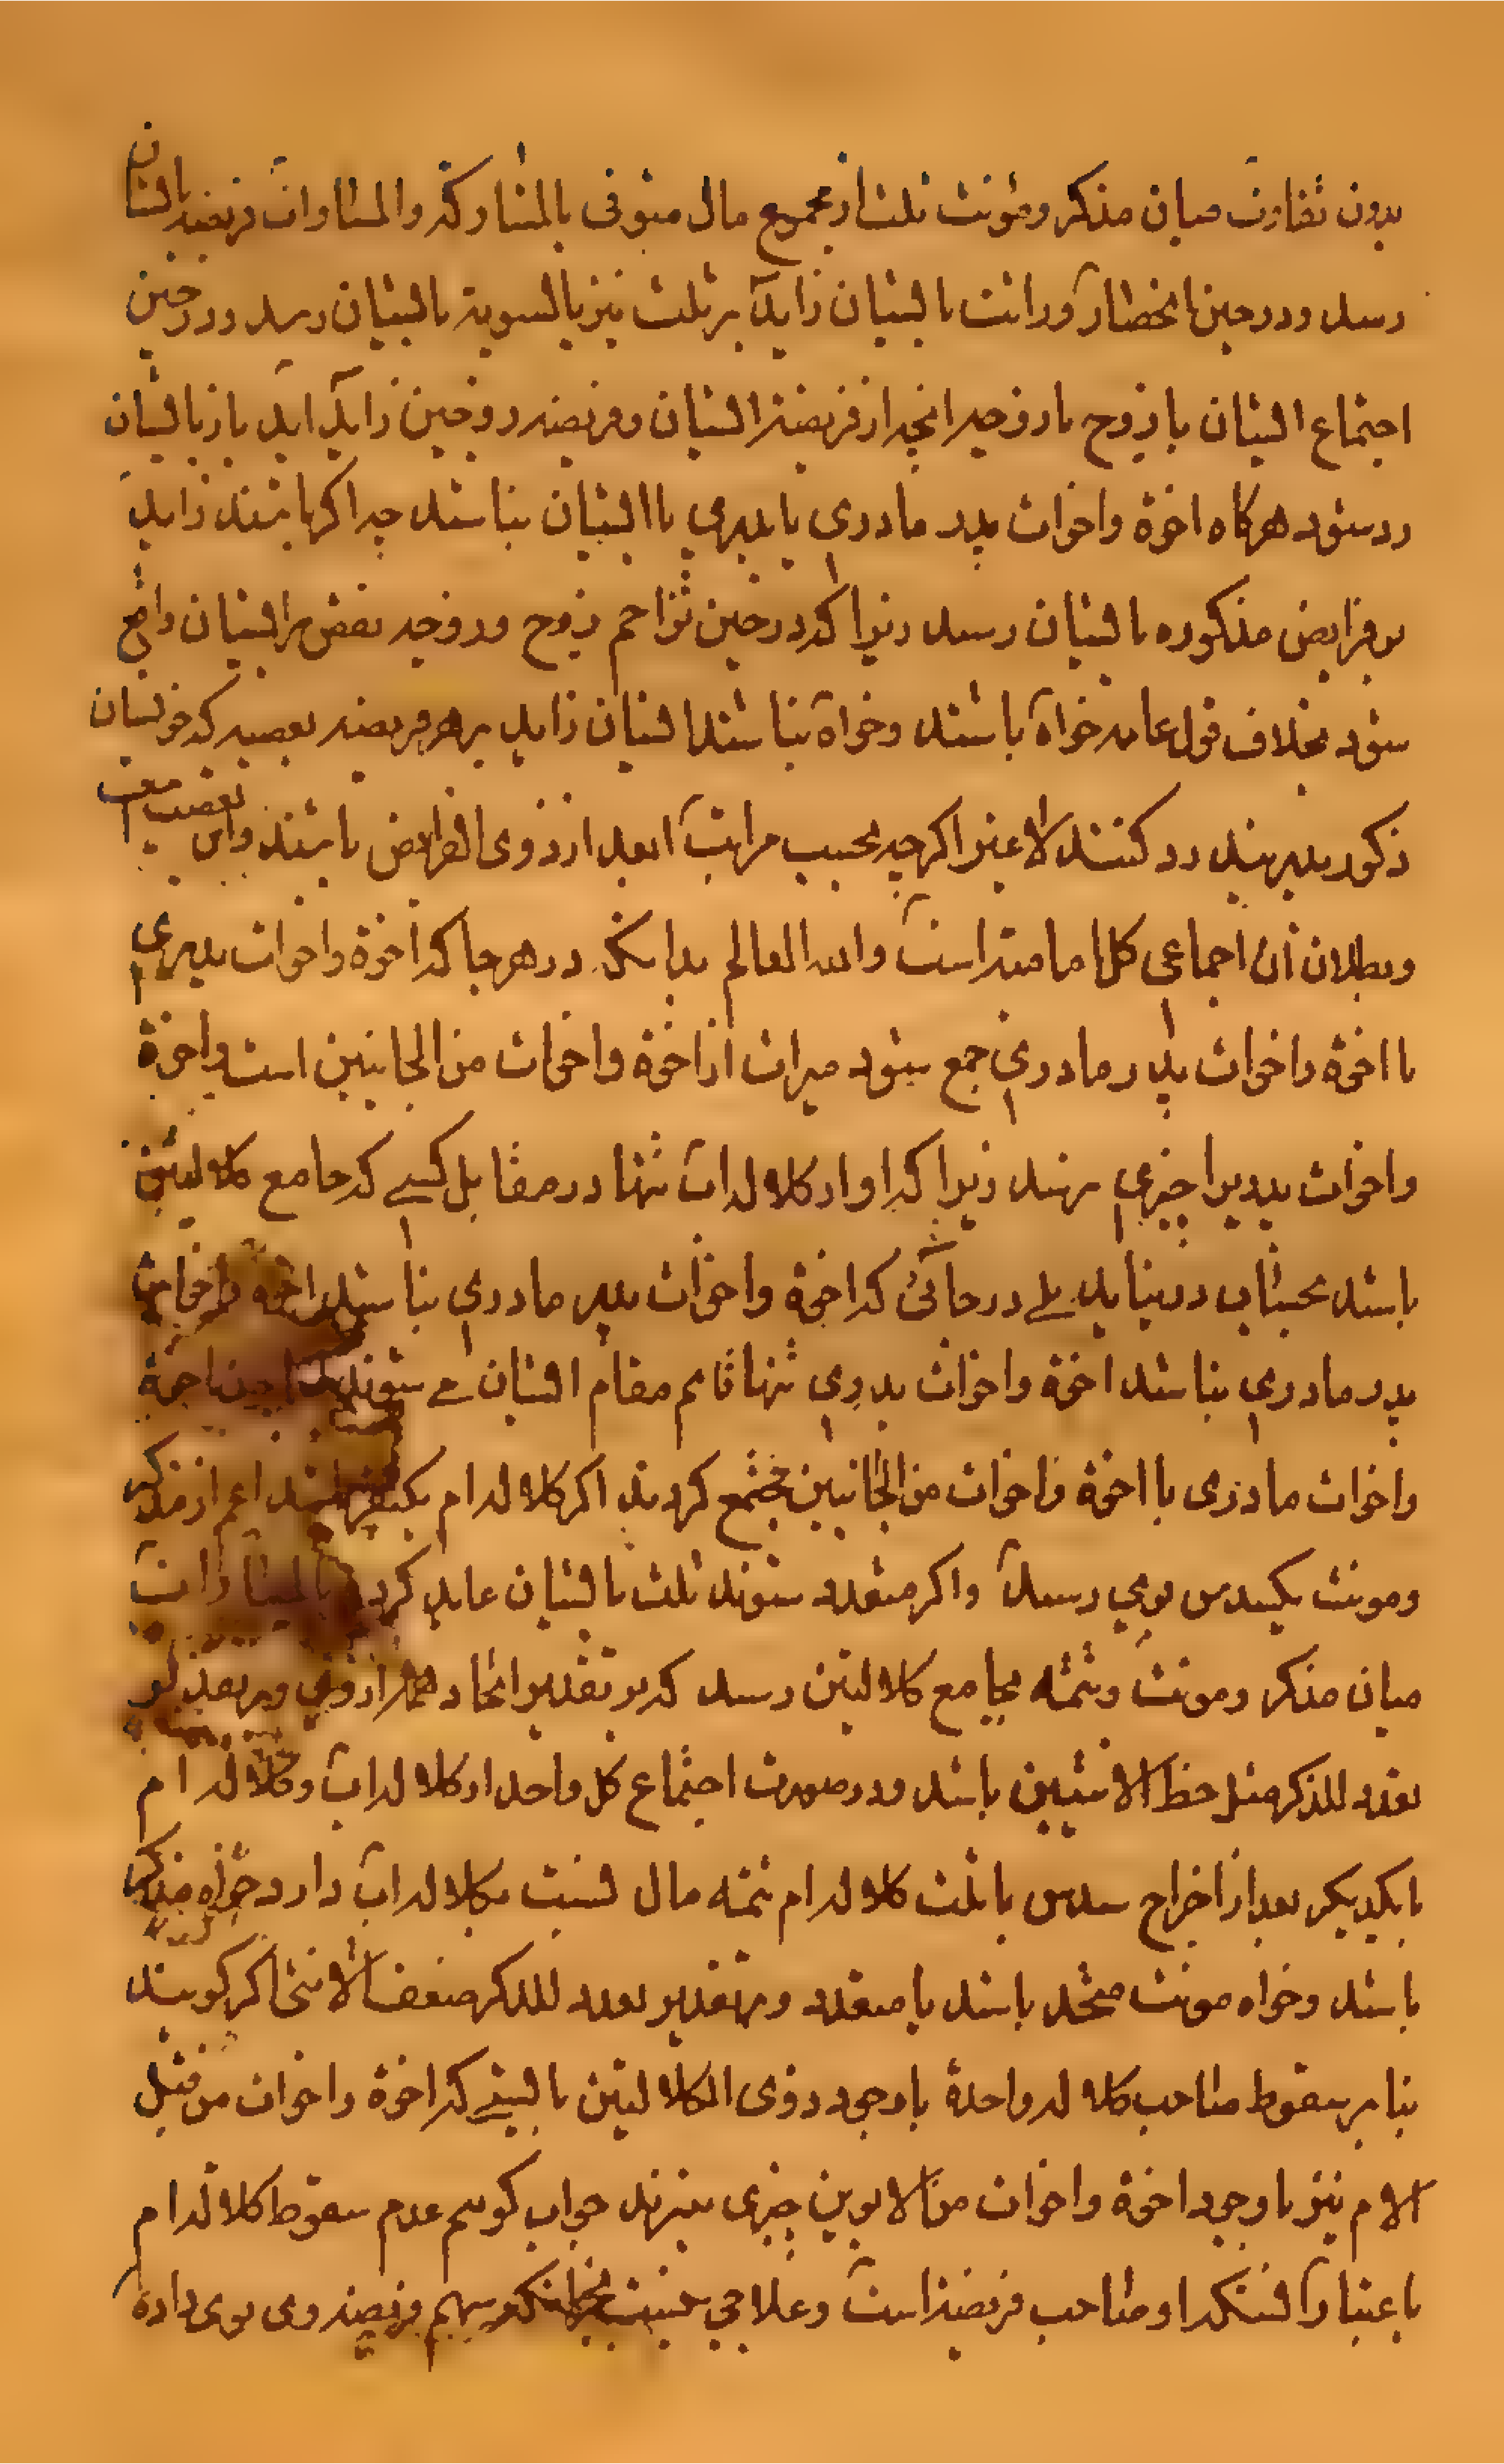 بدون تفاوت میان مذکر و مؤنث ثلث از جمیع مال متوفی بالمشارکة والمساوات فریضه بایشان
رسد و در حین انحصار وراثت بایشان زاید بر ثلث نیز بالسویة بایشان رسد و در حین
اجتماع ایشان با زوج یا زوجه انچه از فریضه ایشان و فریضه زوجین زاید اید باز بایشان
رد شود هرکاه اخوة واخوات پدر مادری یا پدری با ایشان نباشد چه اکر باشند زاید
بر فرایض مذکوره بایشان رسد زیرا که در حین تزاحم زوج و زوجه نقص بر ایشان واقع
شود بخلاف قول عامه خواه باشند وخواه نباشند ایشان زاید بر هر فریضه بعصبه که خویشان
ذکور پدریند رد کنند لا غیر اکرچه بحسب مراتب ابعد از ذوی الفرایض باشند واین تعصیب
وبطلان آن اجماعی کل امامیه است والله العالم بدانکه در هر جا که اخوة واخوات پدری
با اخوة واخوات پدر مادری جمع شود میراث از اخوة واخوات من الجانبین است واخوة
واخوات پدریرا چیزی نرسد زیرا که او از کلاله اب تنها در مقابل کسی که جامع کلالتین
باشد بحساب در نیاید بلی در جائی که اخوة واخوات پدر مادری نباشد اخوة واخوات
پدر مادری نباشد اخوة واخوات پدری تنها قایم مقام ایشان می شوند اخوة
واخوات مادری با اخوة واخوات من الجانبین مجتمع کردند اکر کلاله ام یکنفر باشد اعم از مذکر
ومونث یکسدس بوی رسد واکر متعدد شوند ثلث بایشان عاید کردد بالمساوات
میان مذکر ومونث وتتمه بجامع کلالتین رسد که بر تقدیر اتحاد وبر تقدیر
تعدد للذکر مثل حظ الانثیین باشد ودر صورت اجتماع کل واحد از کلاله اب وکلاله ام
با یکدیکر بعد از اخراج سدس یا ثلث کلاله ام تتمه مال نسبت بکلاله اب دارد خواه مذکر
باشد وخواه مونث متحد باشد یا متعدد وبتقدیر تعدد للذکر ضعف الانثی اکر کویند
بنا بر سقوط صاحب کلاله واحدة با وجود ذوی الکلالتین بایستی که اخوة واخوات من قبل
الام نیز با وجود اخوة واخوات من الابوین چیزی نبرند جواب کوییم عدم سقوط کلاله ام
باعتبار آنستکه او صاحب فریضه است وعلاجی نیست بجز آنکه سهم فریضه وی بوی داده